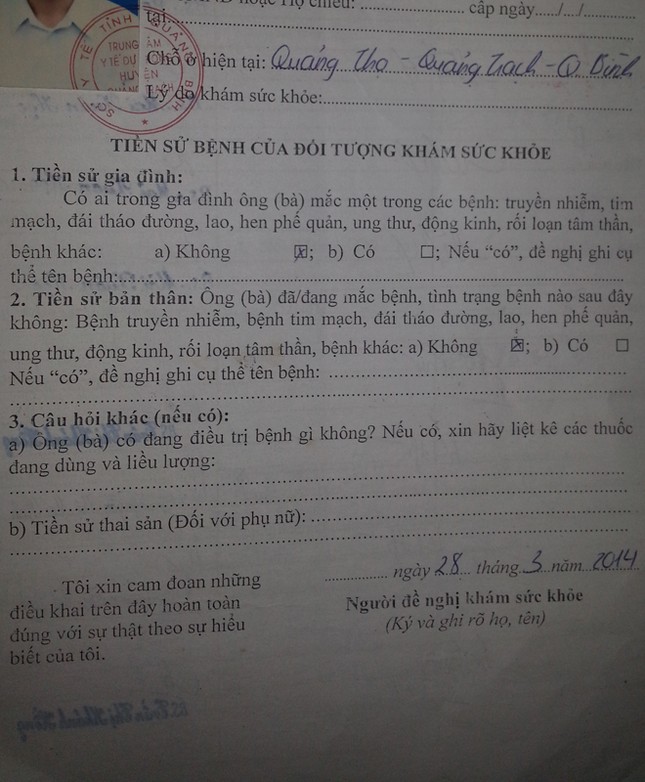 hoặc Hộ chiếu:.......................... cấp ngày...../.../..........
tại:
SỞ Y TẾ TỈNH QUẢNG BÌNH
TRUNG TÂM
Y TẾ DỰ
HUYỆN
Chỗ ở hiện tại: Quảng Thọ - Quảng Trạch - Q. Bình
Lý do khám sức khỏe:
TIỀN SỬ BỆNH CỦA ĐỐI TƯỢNG KHÁM SỨC KHỎE
1. Tiền sử gia đình:
Có ai trong gia đình ông (bà) mắc một trong các bệnh: truyền nhiễm, tim
mạch, đái tháo đường, lao, hen phế quản, ung thư, động kinh, rối loạn tâm thần,
bệnh khác: a) Không ☒; b) Có ☐; Nếu “có”, đề nghị ghi cụ
thể tên bệnh:
2. Tiền sử bản thân: Ông (bà) đã/đang mắc bệnh, tình trạng bệnh nào sau đây
không: Bệnh truyền nhiễm, bệnh tim mạch, đái tháo đường, lao, hen phế quản,
ung thư, động kinh, rối loạn tâm thần, bệnh khác: a) Không ☒; b) Có ☐
Nếu “có”, đề nghị ghi cụ thể tên bệnh:
3. Câu hỏi khác (nếu có):
a) Ông (bà) có đang điều trị bệnh gì không? Nếu có, xin hãy liệt kê các thuốc
đang dùng và liều lượng:
b) Tiền sử thai sản (Đối với phụ nữ):
............ ngày 28 tháng 3 năm 2014
Tôi xin cam đoan những
điều khai trên đây hoàn toàn
đúng với sự thật theo sự hiểu
biết của tôi.
Người đề nghị khám sức khỏe
(Ký và ghi rõ họ, tên)